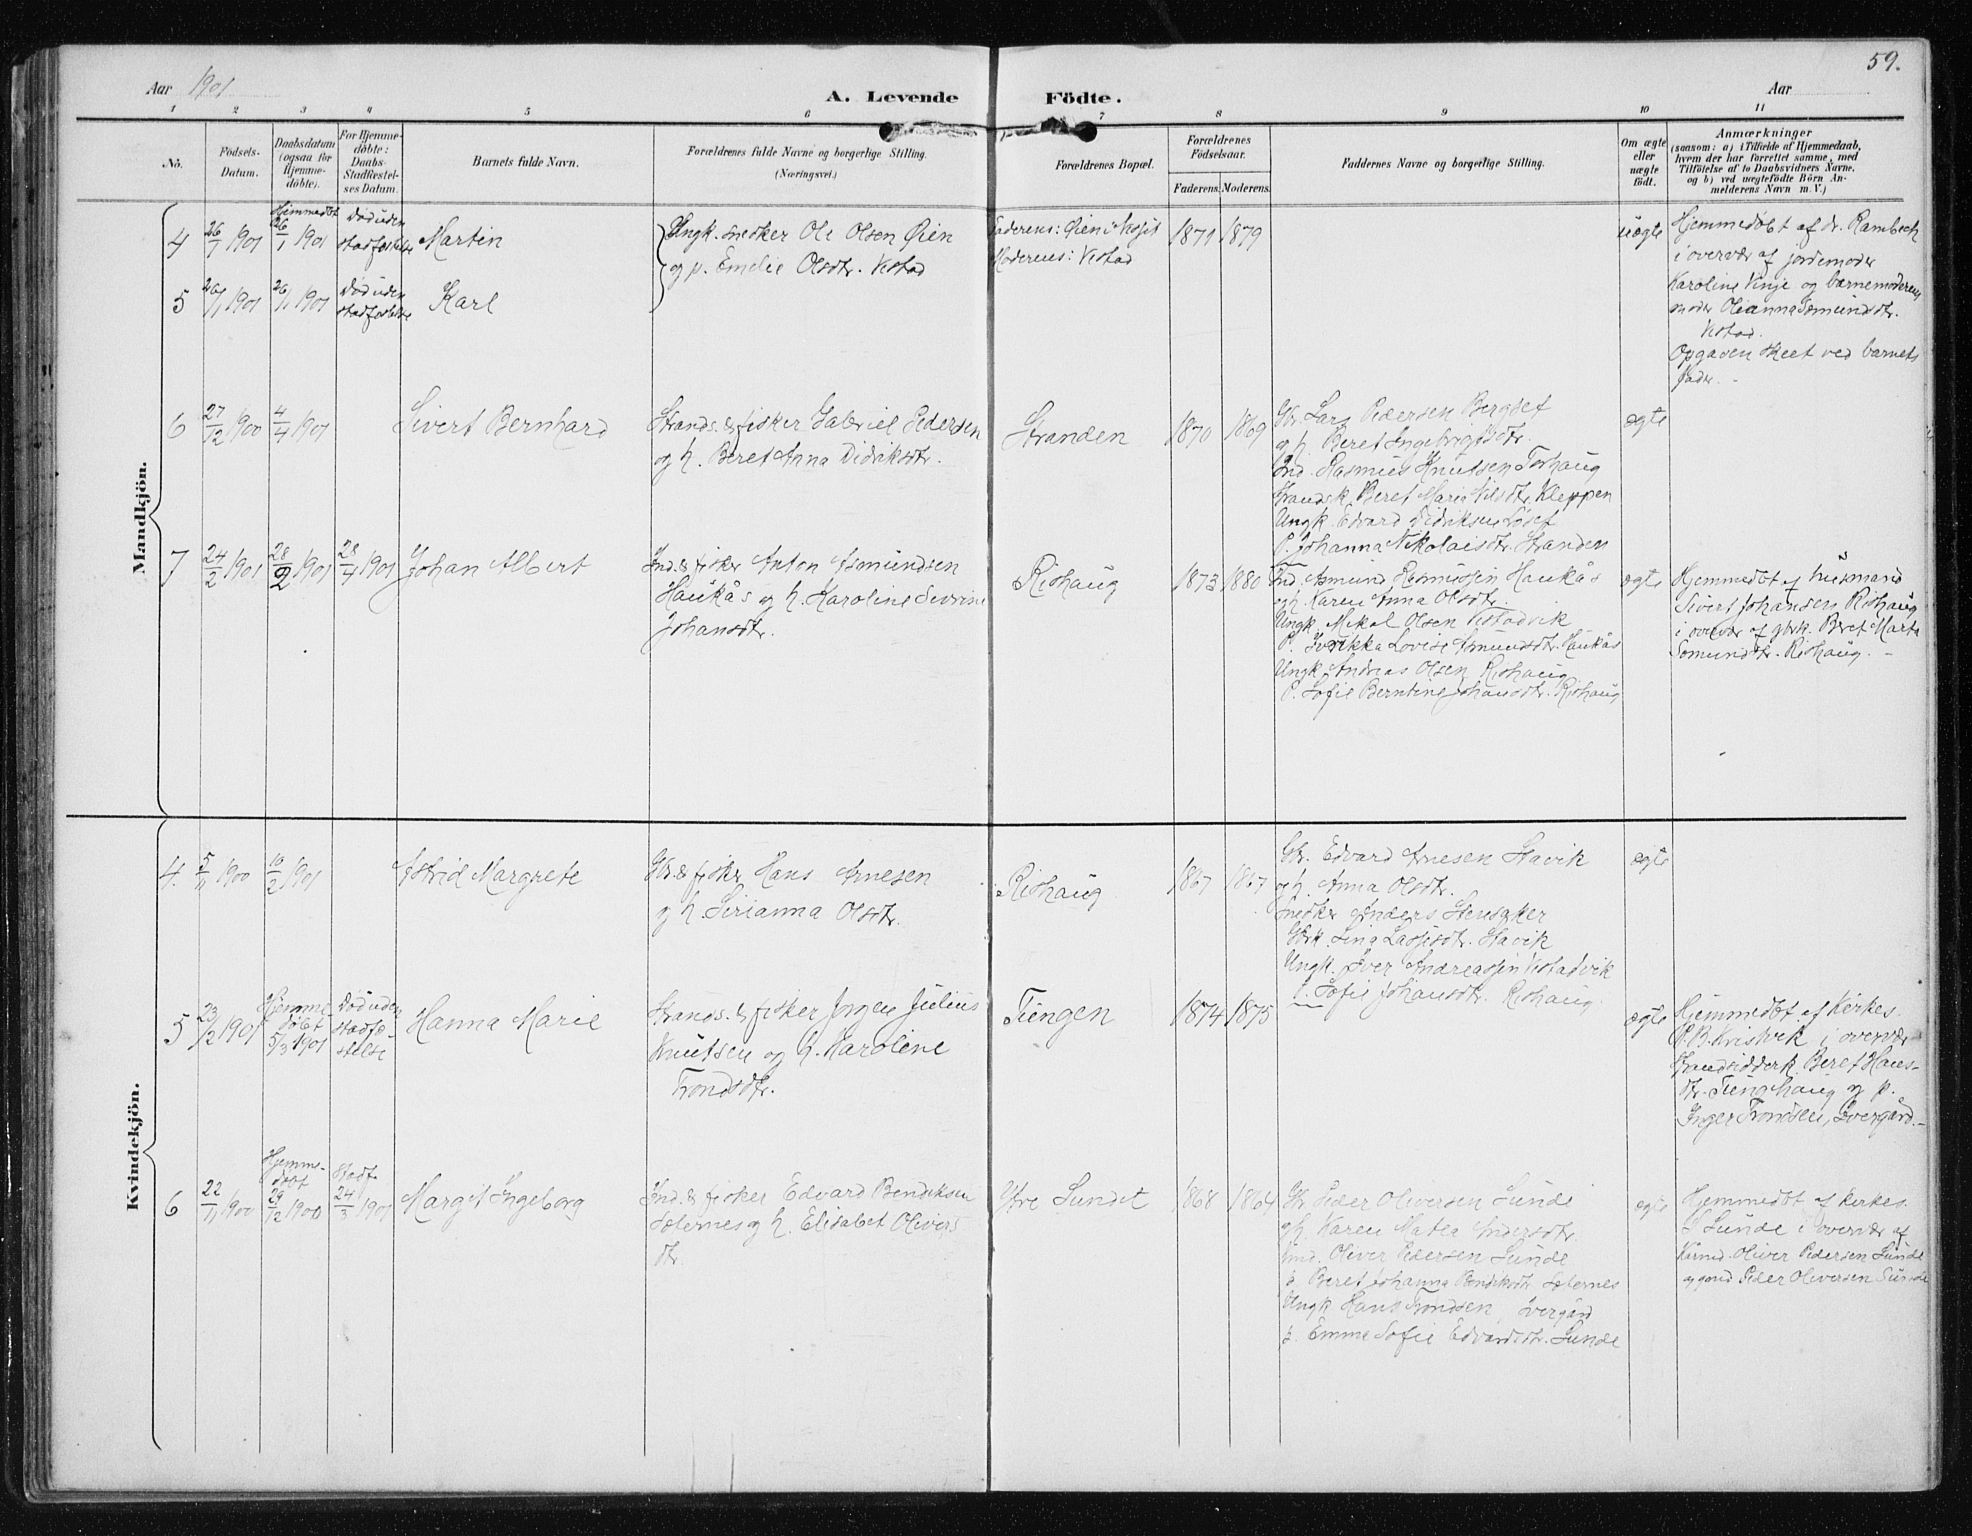 59.
Aar 1901
A. Levende Födte.
Aar
1 2 3 4 5 6 7 8 9 10 11
No.
Födsels-
Datum.
Daabsdatum
(ogsaa for
Hjemme-
döbte).
For Hjemme-
döbte:
Daabs-
Stadfæstel-
ses Datum.
Barnets fulde Navn.
Forældrenes fulde Navne og borgerlige Stilling.
(Næringsvei.)
Forældrenes Bopæl.
Forældrenes
Födselsaar.
Faderens. Moderens.
Faddernes Navne og borgerlige Stilling.
Om ægte
eller
uægte
födt.
Anmærkninger
(saasom: a) i Tilfælde af Hjemmedaab,
hvem der har forrettet samme, med
Tilföielse af to Daabsvidners Navne,
og b) ved uægtefödte Börn An-
melderens Navn m. V.)
Mandkjön.
4
26/1 1901
Hjemmedöbt
26/1 1901
Död uden
stadfæstelse
Martin
Ungk. snedker Ole Olsen Øien
og p. Emelie Olsdtr. Vistad
Faderens: Øien i
Moderens: Vistad
1871
1879
uægte
Hjemmedöbt af dr. Rambech
i overvær af jordemoder
Karoline Vinje og barnemoderens
moder Olianna Sæmundsdtr.
Vistad.
Opgaven skeet ved barnets
fader. -
5
26/1 1901
26/1 1901
Död uden
stadfæstelse
Karl
6
27/12 1900
4/4 1901
Sivert Bernhard
Strands. & fisker Gabriel Pedersen
og h. Beret Anna Didriksdtr.
Stranden
1870
1869
Gbr. Lars Pedersen Bergset
og h. Beret Ingebrigtsdtr.
Ind. Rasmus Knutsen Torhaug
Strandsk. Beret Maria Nilsdtr. Kleppen
Ungk. Edvard Didriksen
P. Johanna Nikolaisdtr. Stranden
ægte
7
24/2 1901
28/2 1901
28/4 1901
Johan Albert
Ind. & fisker Anton Asmundsen
Haukås og h. Karoline Sivrine
Johansdtr.
Rishaug
1873
1880
Ind. Asmund Rasmussen Haukås
og h. Karen Anna Olsdtr.
Ungk. Mikal Olsen Vistadvik
P. Lovise Asmundsdtr. Haukås
Ungk. Andreas Olsen Rishaug
P. Sofie Berntine Johansdtr. Rishaug
ægte
Hjemmedöbt af husmand
Sivert Johansen Rishaug
i overvær af gbrk. Beret Marta
Sæmundsdtr. Rishaug. -
Kvindekjön.
4.
5/11 1900
10/2 1901
Astrid Margrete
Gbr. & fisker Hans Arnesen
og h. Serianna Olsdtr.
Rishaug
1867
1867
Gbr. Edvard Arnesen Stavik
og h. Anna Olsdtr.
Snedker Anders Stensaker
Gbrk. Lina Lassesdtr. Stavik
Ungk. Iver Andreassen Vistadvik
P. Sofie Johansdtr. Rishaug.
ægte
5
23/2 1901
Hjemme
döbt
5/3 1901
Död uden
stadfæ-
stelse
Hanna Marie
Strands. & fisker Jørgen Julius
Knutsen og h. Karoline
Trondsdtr.
Tungen
1874
1875
ægte
Hjemmedöbt af Kirkes.
P. B. Kristvik i overvær
Strandsidderk. Beret Hans-
dtr. Tunghaug og p.
Inger Trondsen, Övergård. -
6
22/11 1900
Hjemme-
döbt
29/12 1900
Stadf.
24/3 1901
Margit Ingeborg
Ind. & fisker Edvard Bendiksen
Sæternes og h. Elisabet Olivers
dtr.
Ytre Sundet
1868
1864
Gbr. Peder Oliversen Sunde
og h. Karen Matea Andersdtr.
Ind. Oliver Pedersen Sunde
p. Beret Johanna Bendiksdtr. Sæternes
Ungk. Hans Trondsen, Övergård
p. Emme Sofie Edvardsdtr. Sunde
ægte
Hjemmedöbt af Kirkes.
Sunde i overvær af
Oliver Pedersen Sunde
og gmd. Peder Oliversen Sunde